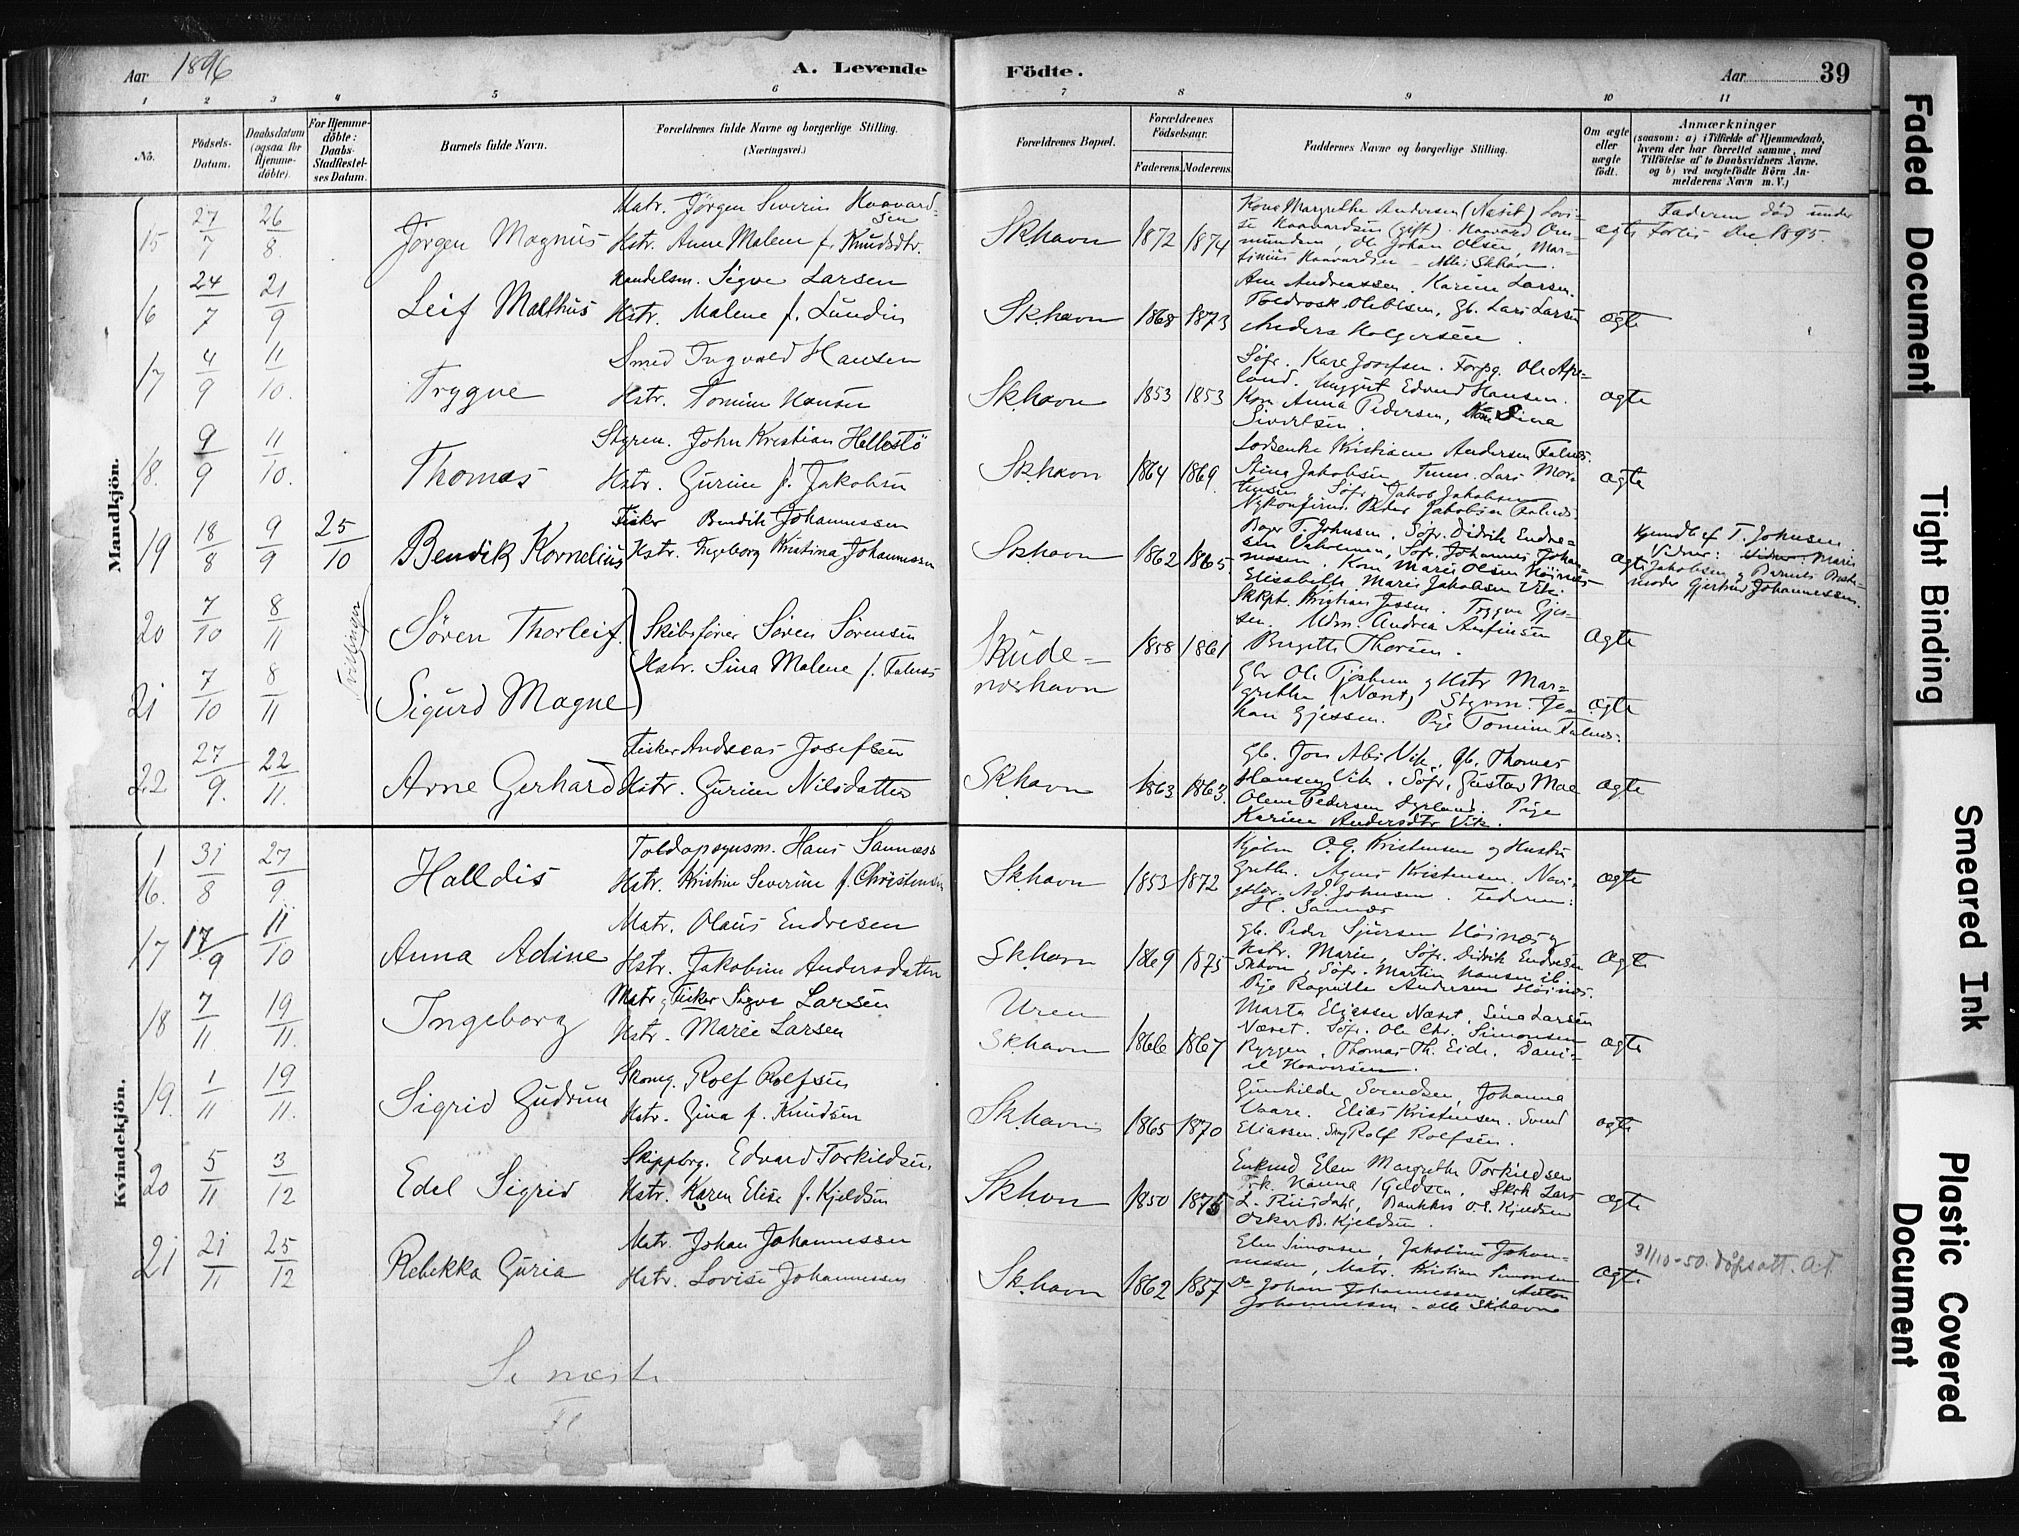 Aar 1896
A. Levende
Födte.
Aar
39
1
2
3
4
5
6
7
8
9
10
11
No.
Födsels-
Datum.
Daabsdatum
(ogsaa for
Hjemme-
döbte).
For Hjemme-
döbte:
Daabs-
Stadfæstel-
ses Datum.
Barnets fulde Navn.
Forældrenes fulde Navne og borgerlige Stilling.
(Næringsvei.)
Forældrenes Bopæl.
Forældrenes
Födselsaar.
Faderens.
Moderens.
Faddernes Navne og borgerlige Stilling.
Om ægte
eller
uægte
födt.
Anmærkninger
(saasom: a) i Tilfælde af Hjemmedaab,
hvem der har forrettet samme, med
Tilföielse af to Daabsvidners Navne,
og b) ved uægtefödte Börn An-
melderens Navn m. V.)
Mandkjön.
15 27/7 26/8 Jörgen Magnus
Matr. Jörgen Severin Haavard-
sen
Hstr. Anne Malene f. Knudsdtr.
Sk.havn 1872 1874
Kone Margrethe Andersen (Næset) Lovi-
se Haavardsen (gift). Haavard
Ole Johan Olsen Mar-
tinius Haavardsen - Alle: Skhavn.
ægte
Faderen död under
Forlis Dec. 1895.
16 24/7 21/9 Leif Malthus
Handelsm. Sigve Larsen
Hstr. Malene f. Lundin
Sk.havn 1868 1873
Ane Andreassen. Karine Larsen.
Ole Olsen, Gb. Lars Larsen
Anders Holgersen.
ægte
17 4/9 11/10. Trygve
Smed Ingvald Hansen
Hstr. Tomine Hansen
Sk.havn 1853 1853
Söfr. Kare Josefsen. Forpg. Ole Ape-
land. Unggut Edvard Hansen.
Kon. Anna Pedersen, Sina
Sivertsen.
ægte
18. 9/9 11/10. Thomas
Styrm. John Kristian Hellestö
Hstr. Gurine f. Jakobsen
Sk.havn 1864 1869.
Lodsenke Kristiane Andersen Falnes.
Stina Jakobsen Lars Mor-
tensen, Söfr. Jakob Jakobsen
Nykonfirm. Peder Jakobsen Falnes.
ægte
19 18/8 9/9 25/10 Bendik Kornelius
Fisker Bendik Johannessen
Hstr. Ingeborg Kristina Johannessen
Sk.havn 1862 1865.
Bager T. Johnsen. Söfr. Didrik Endre-
sen Söfr. Johannes Johan-
nessen. Kone Marie Olsen Höines
Elisabeth Marie Jakobsen Vik.
ægte
Hjemdbt af T. Johnsen
Vidner: Marie
Jakobsen og Barnets Beste-
moder Gjertrud Johannessen.
Tvillinger
20 7/10 8/11 Sören Thorleif.
Skibsförer Sören Sörensen
Hstr. Sina Malene f. Falnes
Skude-
neshavn 1858 1861
Skkpt. Kristian Jessen. Trygve Gjes-
sen. Mdm. Andrea Anfinsen
Birgitte Thorsen.
ægte
21 7/10 8/11 Sigurd Magne
Gbr Ole Tjöstem og Hstr Mar-
grethe (Næset) Styrm. Jo-
han Gjessen. Pige Tomine Falnes.
ægte
22 27/9. 22/11. Arne Gerhard
Fisker Andreas Josefsen
Hstr. Gurine Nilsdatter
Sk.havn 1863 1863.
Gb. Jon Vik, Gb. Thomas
Hansen Vik. Söfr. Gustav Moe
Olene Pedersen Syrland. Pige
Karine Andersdtr Vik.
ægte
Kvindekjön.
16. 31/8 27/9. Halldis
Toldopsynsm. Hans Sannæss
Hstr. Kristine Severine f. Christensen
Sk.havn 1853 1872
Kjöbm O. G. Kristensen og Hustru
Grethe. Agnes Kristensen. Navi-
Ad. Johnsen. Faderen:
H. Sannæs
ægte
17 17/9 11/10 Anna Adine
Matr. Olaus Endresen
Hstr. Jakobine Andersdatter
Sk.havn 1869 1875
Gb. Peder Sjursen Höinæs og
Hstr. Marie, Söfr. Didrik Endresen
Skhavn, Söfr. Martin Hansen ib.
Pige Ragnilde Andersen Höinæs.
ægte
18 7/11 19/11. Ingeborg
Matr. Fisker Sigve Larsen
Hstr. Marie Larsen
Uren
Sk.havn 1866 1867
Marta Eliassen Næset. Sine Larsen
Næset. Söfr. Ole Chr. Simonsen
Ryggen, Thomas Th. Eide. Dani-
el Haaversen.
ægte
19. 1/11 19/11. Sigrid Gudrun
Skomg. Rolf Rolfsen
Hstr. Gina f. Knudsen
Sk.havn 1865 1870
Gunhilde Svendsen, Johanna
Vaare. Elias Kristensen. Svend
Eliassen. Rolf Rolfsen.
ægte
20 5/11 3/12 Edel Sigrid
Skippbrg. Edvard Torkildsen
Hstr. Karen Elise f. Kjeldsen
Sk.havn 1850 1875
Enkmd Elen Margrethe Torkildsen
Frk. Hanna Kjeldsen, Lars
L. O. Kjeldsen
Oskar B. Kjeldsen.
ægte
21 21/11 25/12 Rebekka Guria
Matr. Johan Johannessen
Hstr. Lovise Johannessen
Sk.havn 1862 1857
Elen Simonsen, Jakobine Johan-
nessen, Matr. Kristian Simonsen
Do Johan Johannessen, Anton
Johannessen - alle Skhavn
ægte
31/10-50. döpsatt. A.T.
Se næste
Faded Document
Tight Binding
Smeared Ink
Plastic Covered
Document